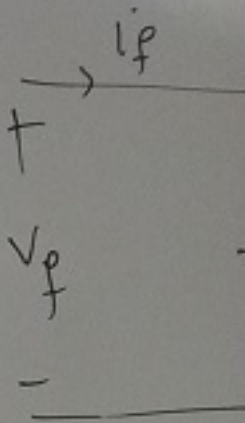 if
+
Vf
-